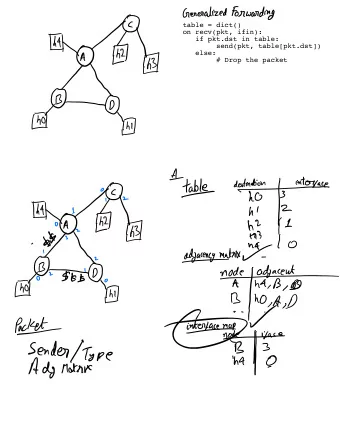 Generalized Forwarding
table = dict()
on recv(pkt, ifin):
if pkt.dst in table:
send(pkt, table[pkt.dst])
else:
# Drop the packet
C
h4
A
h2
h3
B
D
h0
h1
A
table
destination interface
h0 3
h1 2
h2 1
h3
h4 0
adjacency matrix
node adjacent
A h4, B,
B h0, A, D
..
interface map
node iface
B 3
h4 0
0 C
1 2
h4
3
0 A 1
2
h2
h3
$$
1 2
B $$$ D
0 2 1 0
h0
h1
Packet
Sender/Type
Adj Matrix